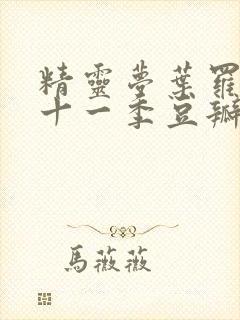 精靈夢葉羅
十一季豆瓣
馬薇薇